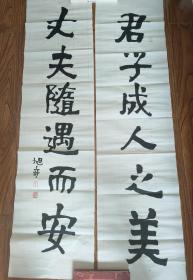 君子成人之美
丈夫隨遇而安